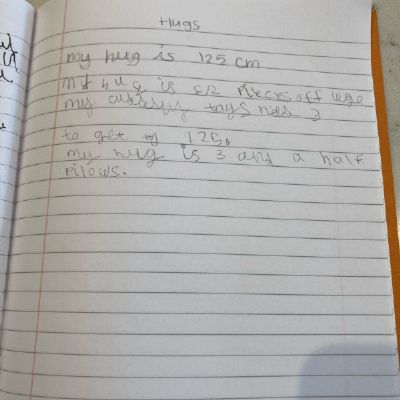 Hugs
my hug is 125 cm
my hug is 52 pieces off lego
my toys 3
to get to 125.
my hug is 3 and a half
pilows.